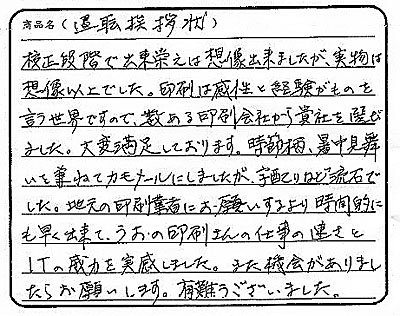 商品名(退転挨拶状)
校正段階で出来栄えは想像出来ましたが、実物は
想像以上でした。印刷は感性と経験がものを
言う世界ですので、数ある印刷会社から貴社を選び
ました。大変満足しております。時節柄、暑中見舞
いを兼ねてカモメールにしましたが、宛名など流石で
した。地元の印刷業者にお願いするより時間的に
も早く出来て、うおの印刷さんの仕事の速さと
ITの威力を実感しました。また機会がありまし
たらお願いします。有難うございました。